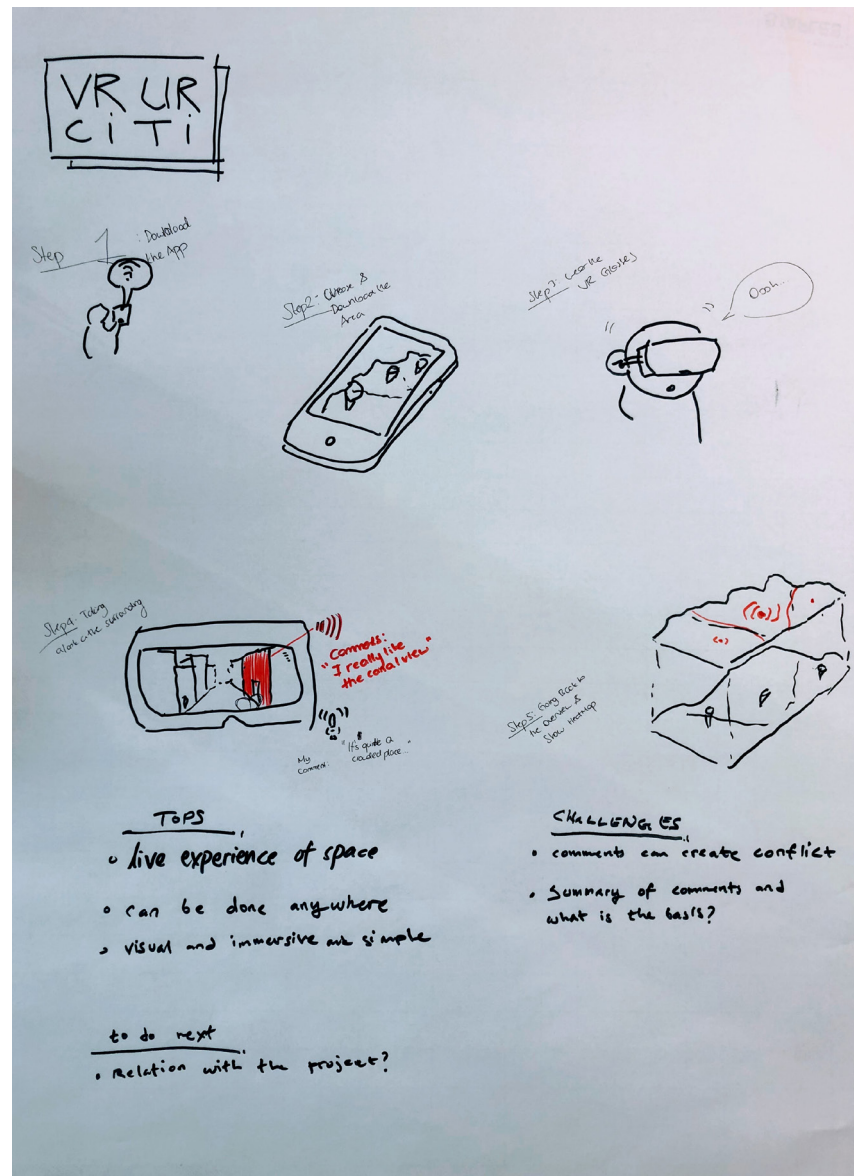 VR UR
CiTi
Step 1 : Download
the App
Step2: Choose &
Download the
Area
Step3: Wear the
VR Glasses
Oooh...
Step4: Taking
a look in the surrounding
Comments:
"I really like
the canal view"
My
comment:
"It's quite a
crowded place..."
Step5: Going Back to
the Overview &
Show Heatmap
TOPS
live experience of space
can be done anywhere
visual and immersive simple
CHALLENGES
comments can create conflict
Summary of comments and
what is the basis?
to do next
Relation with the project?